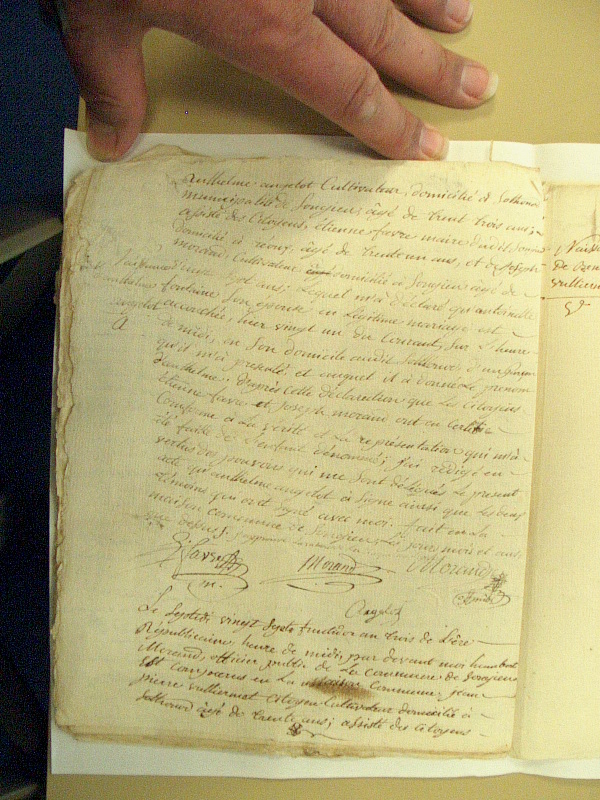 anthelme angelot Cultivateur, domicilié à Sothonod
municipalité de Songieu, âgé de trent trois ans;
assisté des Citoyens, etienne favre maire dudit Songieu
domicilié à âgé de trentun ans, et de joseph
morand Cultivateur domicilié à Songieu, âgé de
sept ans; Lequel m'a déclaré qu'antoinette
fontaine Son épouse en Légitime mariage est
accouchée, hier vingt un du Courant, Sur L'heure
de midi, en Son domicile audit Sothonod, d'un garçon
qu'il m'a présenté et auquel il a donné Le prénom
d'anthelme; d'après cette déclaration que Les Citoyens
Etienne favre et joseph morand ont certifié
Conforme à La vérité et La représentation qui m'a
été faitte de L'enfant dénommé; j'ai rédigé en
vertus des pouvoirs qui me Sont délégués Le present
acte qu'anthelme angelot à Signé ainsi que Les deux
témoins, qui ont Signé avec moi. fait en La
maison commune de Songieu, Les jours mois et ans
que dessus;
Favre
Morand
Morand
m.
Angelot
Le Septidi vingt Sept fructidor an trois de L'ère
Républicaine, heure de midi, par devant moi humbert
Morand, officier public de La Commune de Songieu
Est comparus en La maison Commune, jean
pierre vulliermet Citoyen Cultivateur domicilié à
Sothonod âgé de trente ans; assisté des Citoyens
Naiss
de
vullierm
angelot